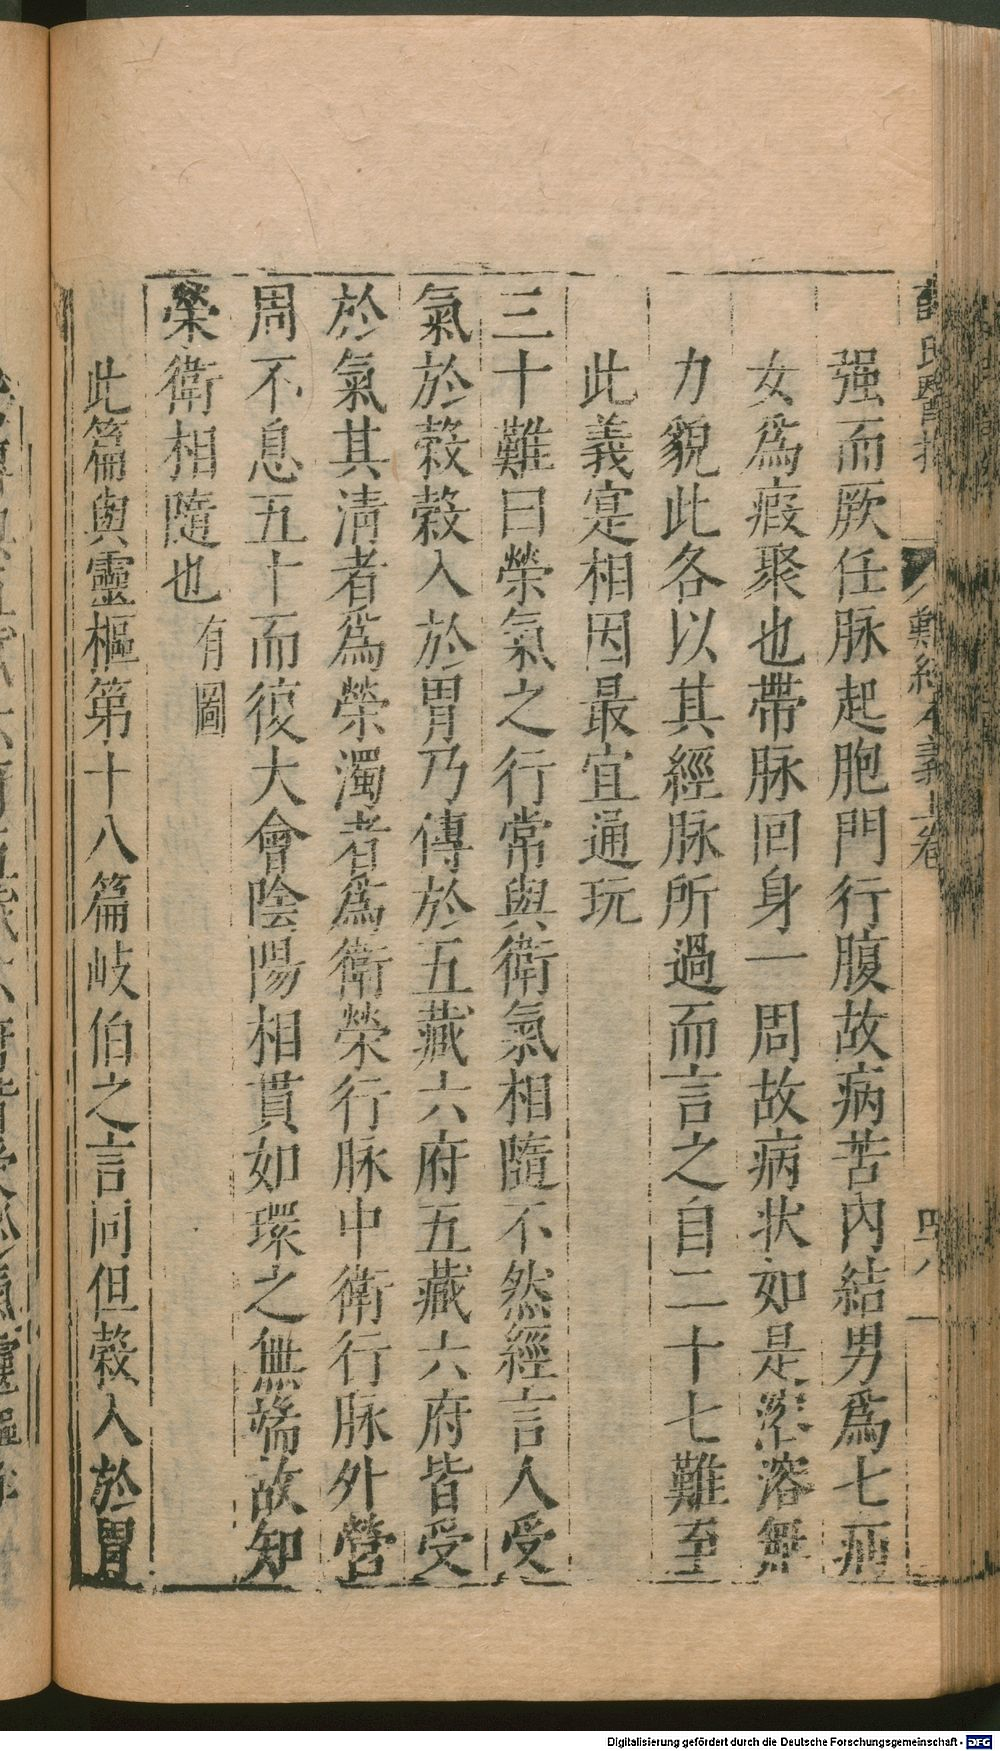 薛氏醫按 難經本義上卷 四八
强而厥任脉起胞門行腹故病苦內結男爲七疝
女爲瘕聚也帶脉回身一周故病状如是溶溶無
力貌此各以其經脉所過而言之自二十七難至
此義寔相因最宜通玩
三十難曰榮氣之行常與衛氣相隨不然經言人受
氣於穀穀入於胃乃傳於五藏六府五藏六府皆受
於氣其淸者爲榮濁者爲衛榮行脉中衛行脉外營
周不息五十而復大會陰陽相貫如環之無端故知
榮衛相隨也有圖
此篇與靈樞第十八篇岐伯之言同但穀入於胃
Digitalisierung gefördert durch die Deutsche Forschungsgemeinschaft - DFG